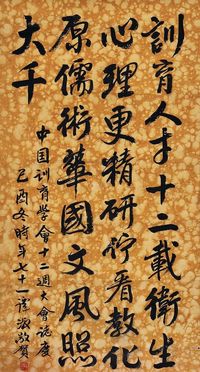 訓育人才十二載衛生
心理更精研佇看教化
原儒術華國文風照
大千
中国訓育學會十二週大會誌慶
己酉冬時年七十一敬賀